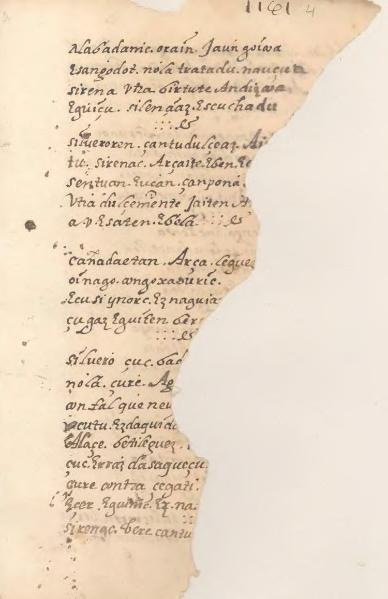 1161 4
Alabadanic. orain. Jaun goiwa
Esangodot. nola tratadu. naucun
sirena Vtra birtute Andizwa
Eguicu. silençaz. Escuchadu
silveroren. cantu dulceaz. Ai
tu. sirenac. Arçaite. Eben. Ec
sentuan. Eucan. çanpona.
Vtra dulcemente Jaiten. A
a v. Esaten. Ebela.
Cañadaetan. Arca. legue
oinago. angoxaduric.
Ecusiynorc. Ez naguia
çugaz Eguiten ber
silvero çuc. bad
nola. çure. Ag
onfal que neu
Ezdaguida
Alaçe. betileguez.
çuc. Erraz dasagueçu
çure contra çegati
Ecer. Eguinie. Ez. na
sirenac. bere cantu